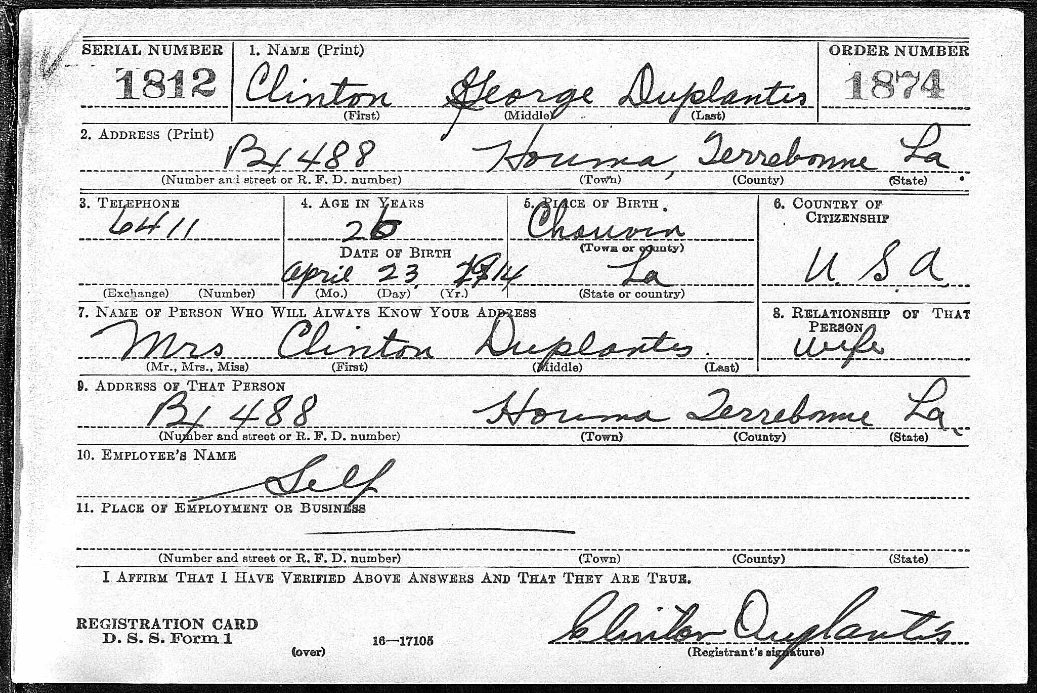 SERIAL NUMBER 1. NAME (Print) ORDER NUMBER
1812 Clinton George Duplantis 1874
(First) (Middle) (Last)
2. ADDRESS (Print)
Bx 488 Houma, Terrebonne La.
(Number and street or R. F. D. number) (Town) (County) (State)
3. TELEPHONE 4. AGE IN YEARS 5. PLACE OF BIRTH 6. COUNTRY OF CITIZENSHIP
6411 26 Chauvin
DATE OF BIRTH (Town or county)
April 23 1914 La U. S. A
(Exchange) (Number) (Mo.) (Day) (Yr.) (State or country)
7. NAME OF PERSON WHO WILL ALWAYS KNOW YOUR ADDRESS 8. RELATIONSHIP OF THAT PERSON
Mrs Clinton Duplantis wife
(Mr., Mrs., Miss) (First) (Middle) (Last)
9. ADDRESS OF THAT PERSON
Bx 488 Houma Terrebonne La.
(Number and street or R. F. D. number) (Town) (County) (State)
10. EMPLOYER'S NAME
Self
11. PLACE OF EMPLOYMENT OR BUSINESS
(Number and street or R. F. D. number) (Town) (County) (State)
I AFFIRM THAT I HAVE VERIFIED ABOVE ANSWERS AND THAT THEY ARE TRUE.
REGISTRATION CARD
D. S. S. Form 1 16—17105 Clinton Duplantis
(over) (Registrant's signature)